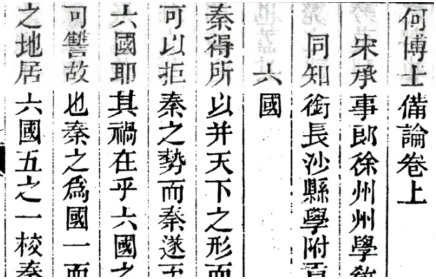 何博士備論卷上
宋承事郎徐州州學
同知銜長沙縣學附
六國
秦得所以并天下之形而
可以拒秦之勢而秦遂
六國耶其禍在乎六國之
可讐故也秦之爲國一而
之地居六國五之一校秦